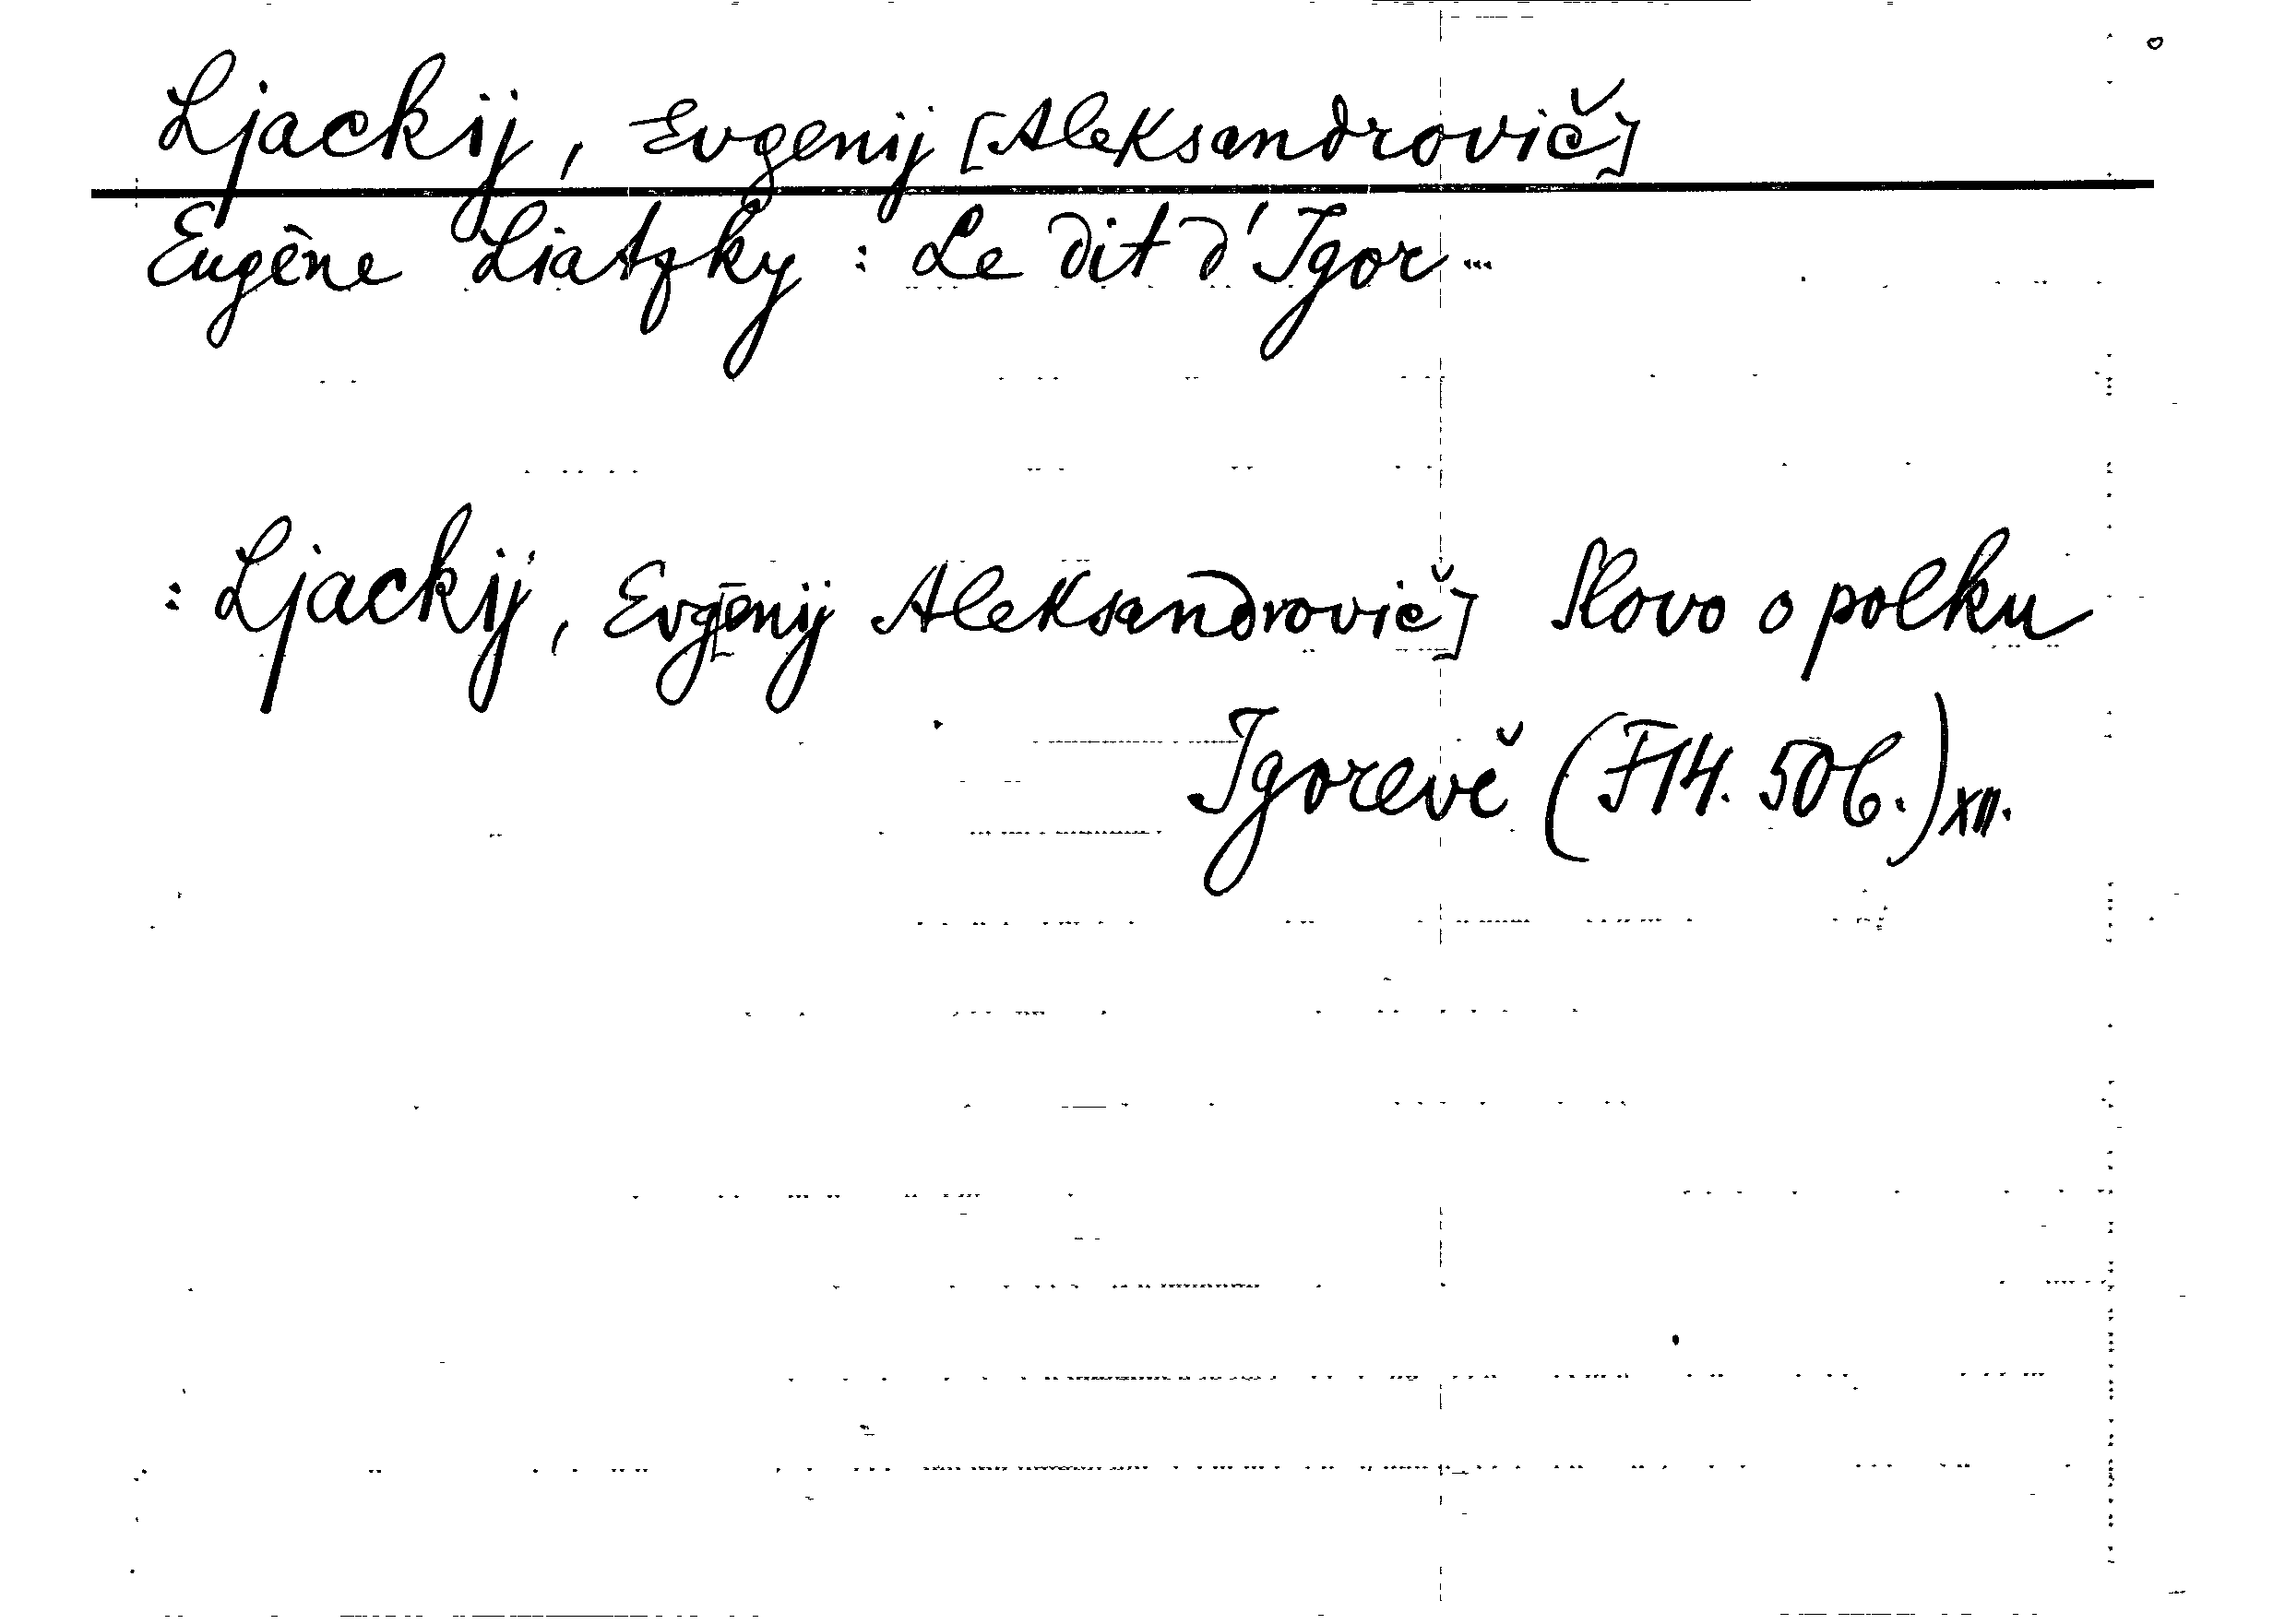 Ljackij, Evgenij [Aleksandrovič]
Eugêne Liatzky : Le dit d'Igor...
: Ljackij, Evg[enij Aleksandrovič] Slovo o polku
Igorevě (F14. 506.) XII.